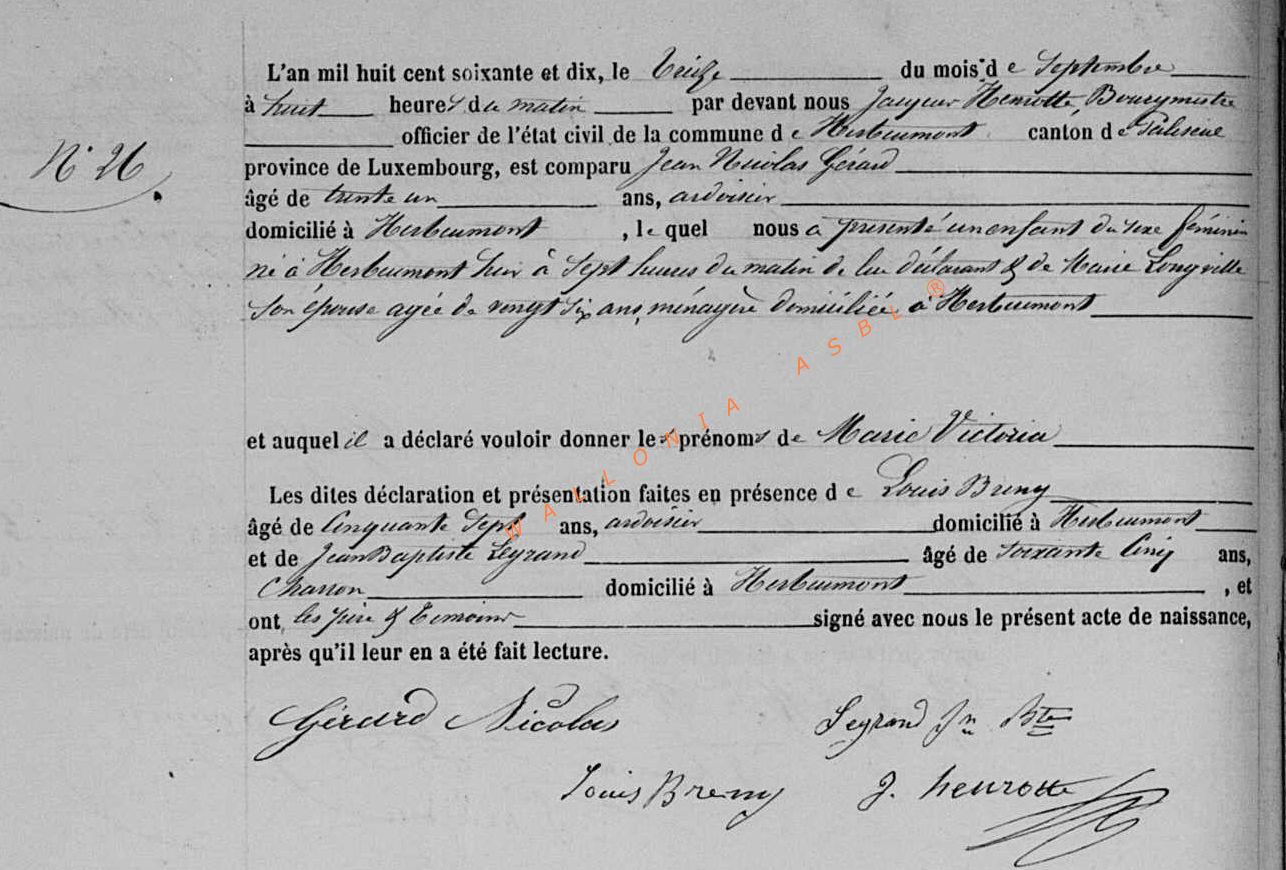 L'an mil huit cent soixante et dix, le treize du mois de Septembre
à huit heures du matin par devant nous Jacques Henrotte Bourgmestre
officier de l'état civil de la commune de Herbeumont canton de Paliseul
N° 26.
province de Luxembourg, est comparu Jean Nicolas Gérard
âgé de trente un ans, ardoisier
domicilié à Herbeumont, le quel nous a présenté un enfant du sexe féminin
né à Herbeumont hier à sept heures du matin de lui déclarant & de Marie Longville
son épouse agée de vingt six ans, ménagère domiciliée à Herbeumont
et auquel il a déclaré vouloir donner les prénoms de Marie Victoria
Les dites déclaration et présentation faites en présence de Louis Bremy
âgé de Cinquante Sept ans, ardoisier domicilié à Herbeumont
et de Jean Baptiste Legrand âgé de soixante Cinq ans,
Charron domicilié à Herbeumont, et
ont les père & témoins signé avec nous le présent acte de naissance,
après qu'il leur en a été fait lecture.
Gérard Nicolas Legrand Jn Bte
Louis Bremy J. henrotte
WALLONIA ASBL ®